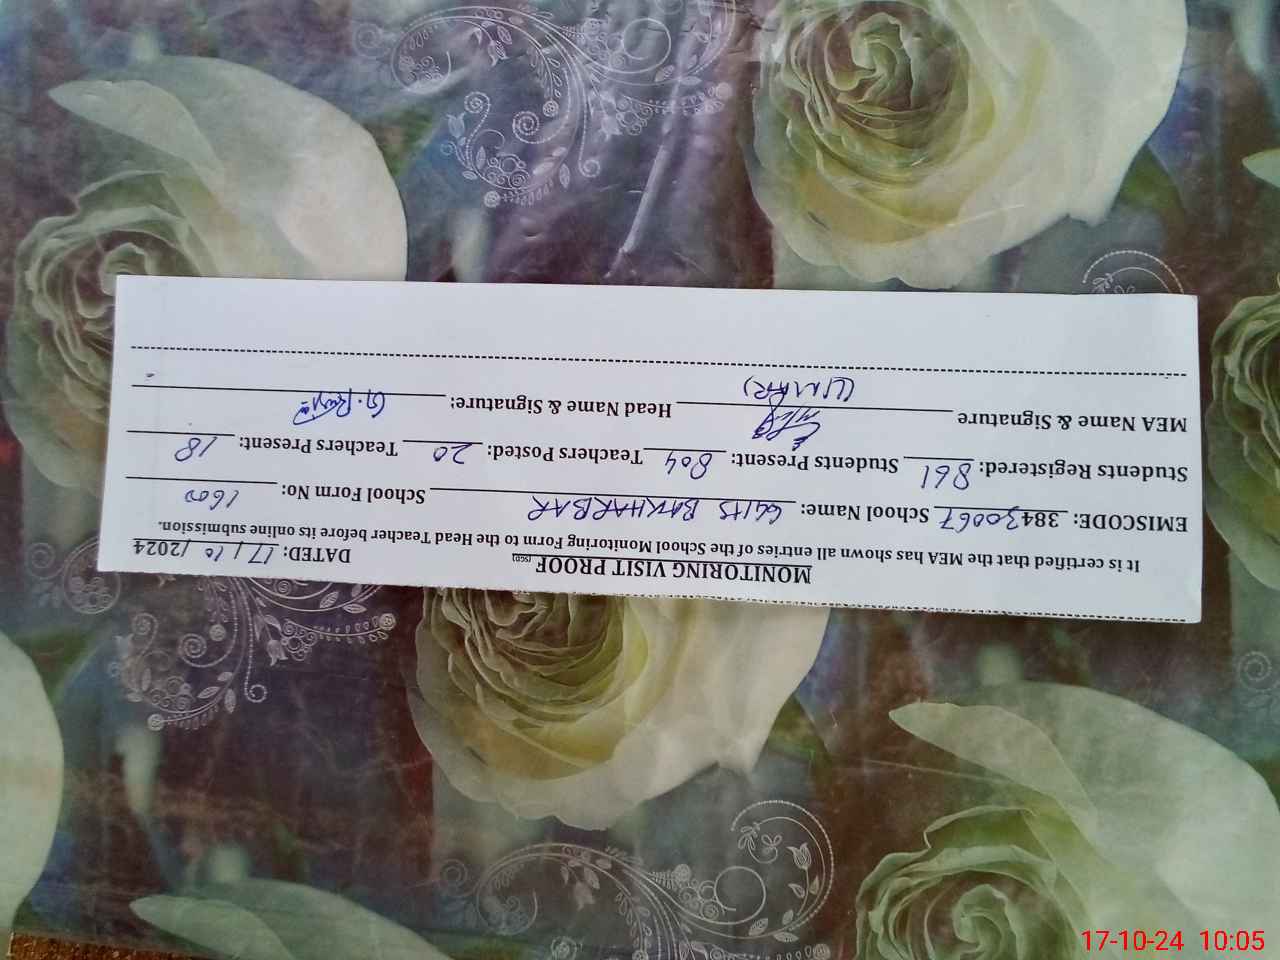 MONITORING VISIT PROOF (SED) DATED: 17/10/2024
It is certified that the MEA has shown all entries of the School Monitoring Form to the Head Teacher before its online submission.
EMISCODE: 38430067 School Name: GGHS BAKHARBAR School Form No: 1600
Students Registered: 861 Students Present: 804 Teachers Posted: 20 Teachers Present: 18
MEA Name & Signature Head Name & Signature:
17-10-24 10:05